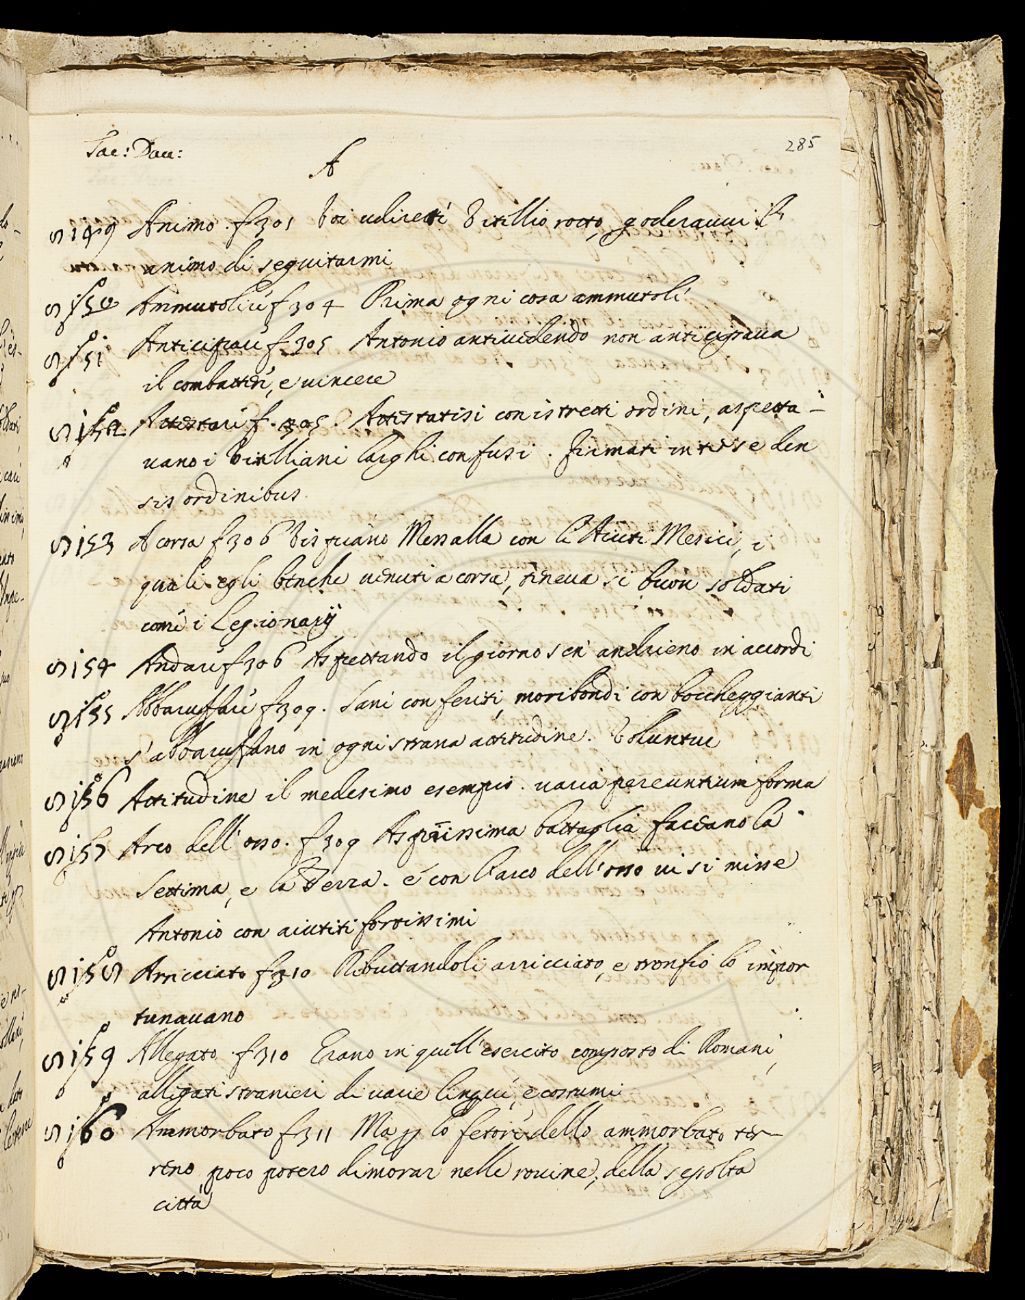 Tac: Dau:
A
285
5149 Animo. f 301 Voi udirete Vitellio rotto, goderauui l'
animo di seguitarmi
5150 Ammutolire f 304 Prima ogni cosa ammutolì
5151 Anticipare f 305 Antonio antiuedendo non anticipaua
il combattere, e uincere
5152 Attestare f. 305. Attestatisi con istretti ordini, aspetta-
uano i Vitelliani larghi confusi. firmati inter se den
sis ordinibus
5153 A corsa f 306 Vipsciano Messalla con li Aiuti Mesici, i
quali egli benche uenuti a corsa, teneua si buon soldati
come i Legionarij
5154 Andare f 306 Aspettando il giorno s'en andrieno in accordi
5155 Abbaruffare f 309. Sani con feriti, moribondi con boccheggianti
s'abbaruffano in ogni strana attitudine. Voluntur
5156 Attitudine il medesimo esempio. uaria pereuntium forma
5157 Arco dell'osso. f 309 Asprissima battaglia faceano la
Settima, e la Terza. e con l'arco dell'osso ui si misse
Antonio con aiutiti fortissimi
5158 Arricciato f 310 Ributtandoli arricciato, e tronfio lo impor
tunauano
5159 Allegato f 310 Erano in quell'esercito composto di Romani,
allegati stranieri di uarie lingue, e costumi
5160 Ammorbato f 311 Ma pp lo fetore dello ammorbato ter-
reno, poco potero dimorar nelle rouine, della sepolta
città